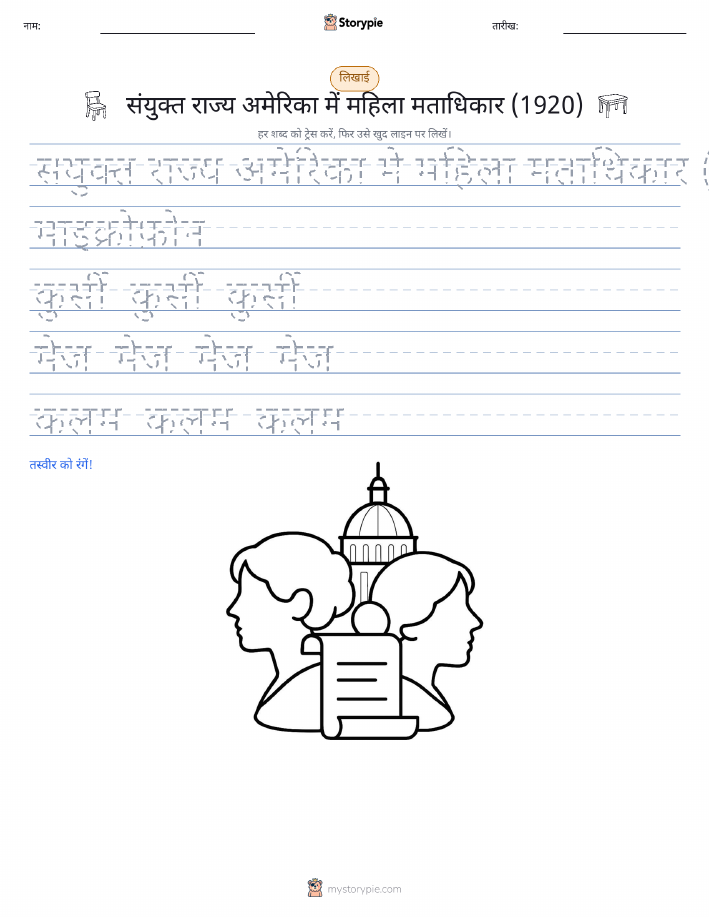 नाम:
Storypie
तारीख:
लिखाई
संयुक्त राज्य अमेरिका में महिला मताधिकार (1920)
हर शब्द को ट्रेस करें, फिर उसे खुद लाइन पर लिखें।
संयुक्त राज्य अमेरिका में महिला मताधिकार (
माइक्रोफ़ोन
कुर्सी कुर्सी कुर्सी
मेज मेज मेज मेज
कलम कलम कलम
तस्वीर को रंगें!
mystorypie.com